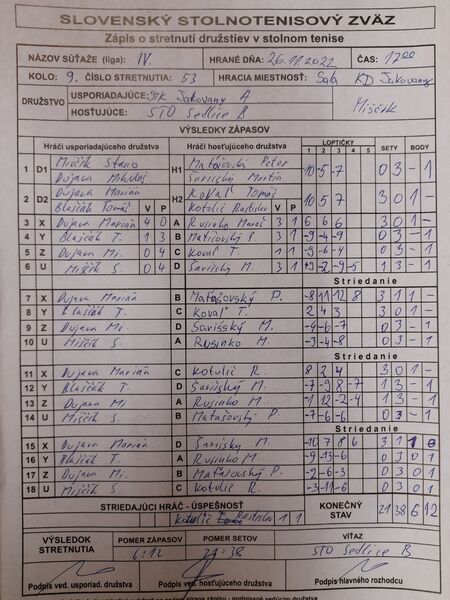 SLOVENSKÝ STOLNOTENISOVÝ ZVÄZ
Zápis o stretnutí družstiev v stolnom tenise
NÁZOV SÚŤAŽE (liga): IV. HRANÉ DŇA: 26.11.2022 ČAS: 1700
KOLO: 9. ČÍSLO STRETNUTIA: 53 HRACIA MIESTNOSŤ: Sála KD Jakovany
DRUŽSTVO USPORIADAJÚCE: STK Jakovany A
HOSŤUJÚCE: STO Sedlice B Miščík
VÝSLEDKY ZÁPASOV
Hráči usporiadajúceho družstva Hráči hosťujúceho družstva LOPTIČKY SETY BODY
1 2 3 4 5
1 D1 Miščík Stano H1 Maťašovský Peter -10 -5 -7 0 3 - 1
Dujava Mikuláš Šarišský Martin
2 D2 Dujava Marián H2 Kovaľ Tomáš 10 5 7 3 0 1 -
Blaščák Tomáš V P Kotulič Rastislav V P
3 X Dujava Marián 4 0 A Rusinko Maroš 3 1 6 6 6 3 0 1 -
4 Y Blaščák T. 1 3 B Maťašovský P. 3 1 -9 -4 -9 0 3 - 1
5 Z Dujava Mi. 0 4 C Kovaľ T. -9 -6 -4 0 3 - 1
6 U Miščík S. 0 4 D Šarišský M. 3 1 -9 -2 9 -5 1 3 - 1
Striedanie
7 X Dujava Marián B Maťašovský P. -8 11 12 8 3 1 1 -
8 Y Blaščák T. C Kovaľ T. 2 4 3 3 0 1 -
9 Z Dujava Mi. D Šarišský M. -9 -6 -7 0 3 - 1
10 U Miščík S. A Rusinko M. -3 -4 -8 0 3 - 1
Striedanie
11 X Dujava Marián C Kotulič R. 8 2 4 3 0 1 -
12 Y Blaščák T. D Šarišský M. -7 -9 8 -7 1 3 - 1
13 Z Dujava Mi. A Rusinko M. -1 12 -2 -4 1 3 - 1
14 U Miščík S. B Maťašovský P. -7 -6 -6 0 3 - 1
Striedanie
15 X Dujava Marián D Šarišský M. -10 7 8 6 3 1 1 0
16 Y Blaščák T. A Rusinko M. -9 -13 -6 0 3 0 1
17 Z Dujava Mi. B Maťašovský P. -2 -6 -3 0 3 0 1
18 U Miščík S. C Kotulič R. -3 -11 -6 0 3 0 1
STRIEDAJÚCI HRÁČ - ÚSPEŠNOSŤ KONEČNÝ STAV 21 38 6 12
Kotulič Rastislav 1 1
VÝSLEDOK STRETNUTIA POMER ZÁPASOV POMER SETOV VÍŤAZ
6:12 21:38 STO Sedlice B
Podpis ved. usporiad. družstva Podpis ved. hosťujúceho družstva Podpis hlavného rozhodcu